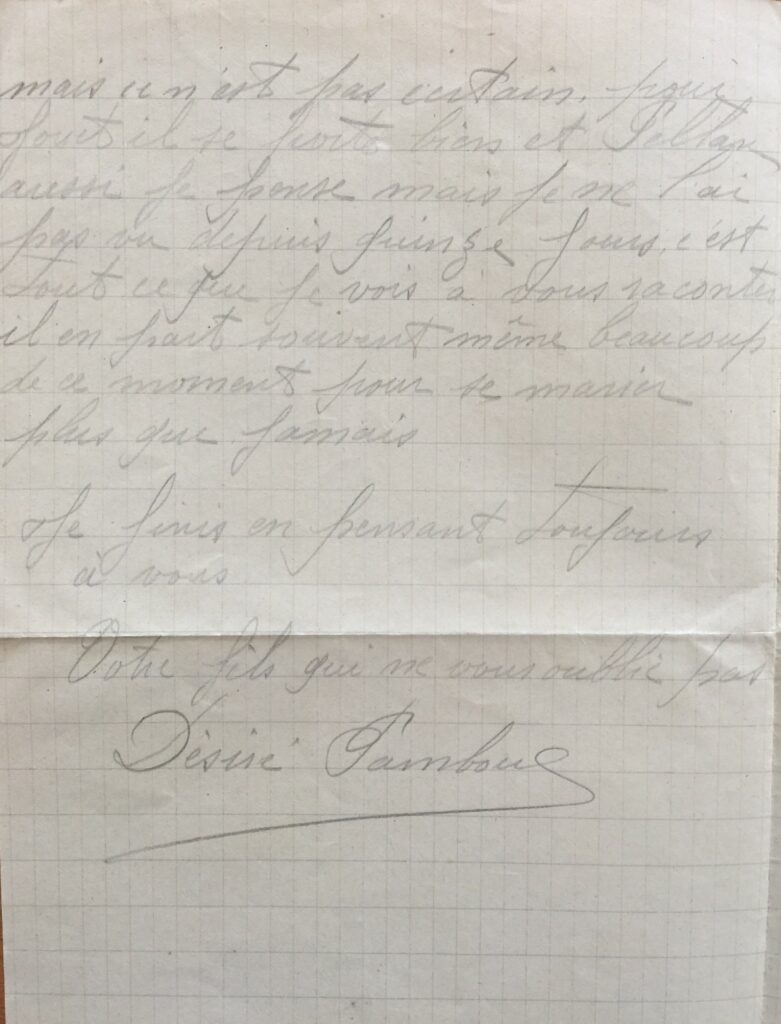 mais ce n'est pas certain. pour
tout il se porte bien et
aussi je pense mais je ne l'ai
pas vu depuis quinze jours, c'est
tout ce que je vois à vous raconter
il en part souvent même beaucoup
de ce moment pour se marier
plus que jamais
Je finis en pensant toujours
à vous
Votre fils qui ne vous oublie pas
Désiré